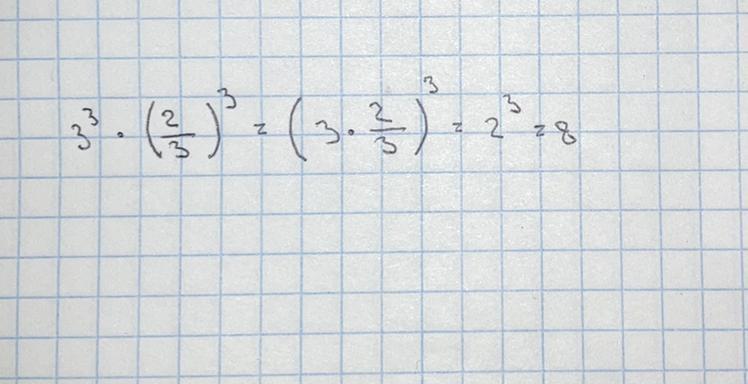 3³ · (2/3)³ = (3 · 2/3)³ = 2³ = 8